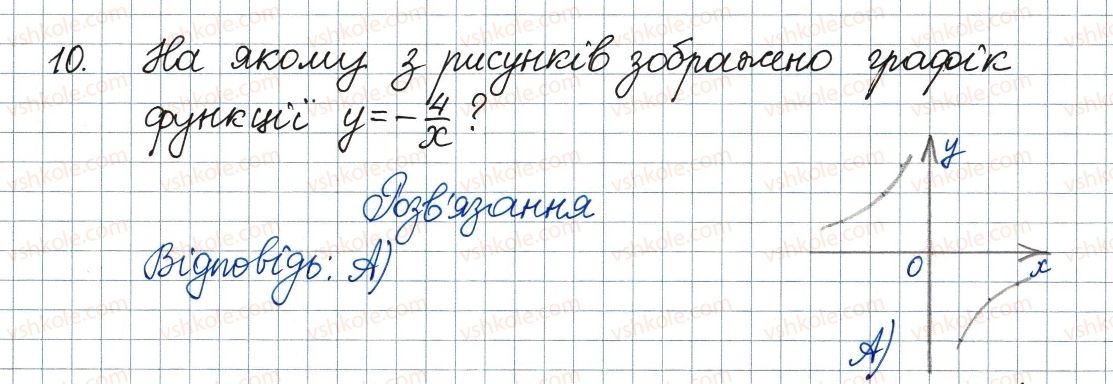 10. На якому з рисунків зображено графік
функції y = - 4/x ?
Розв'язання
Відповідь: А)
y
0
x
А)
vshkole.com